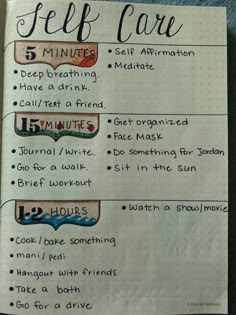 Self Care
5 MINUTES
• Self Affirmation
• Meditate
• Deep breathing.
• Have a drink.
• Call/Text a friend.
15 MINUTES
• Get organized
• Face Mask
• Journal / write.
• Do something for Jordan
• Go for a walk.
• Sit in the sun
• Brief workout
1-2 HOURS
• Watch a show/movie
• Cook/bake something
• mani/ pedi
• Hangout with friends
• Take a bath
• Go for a drive